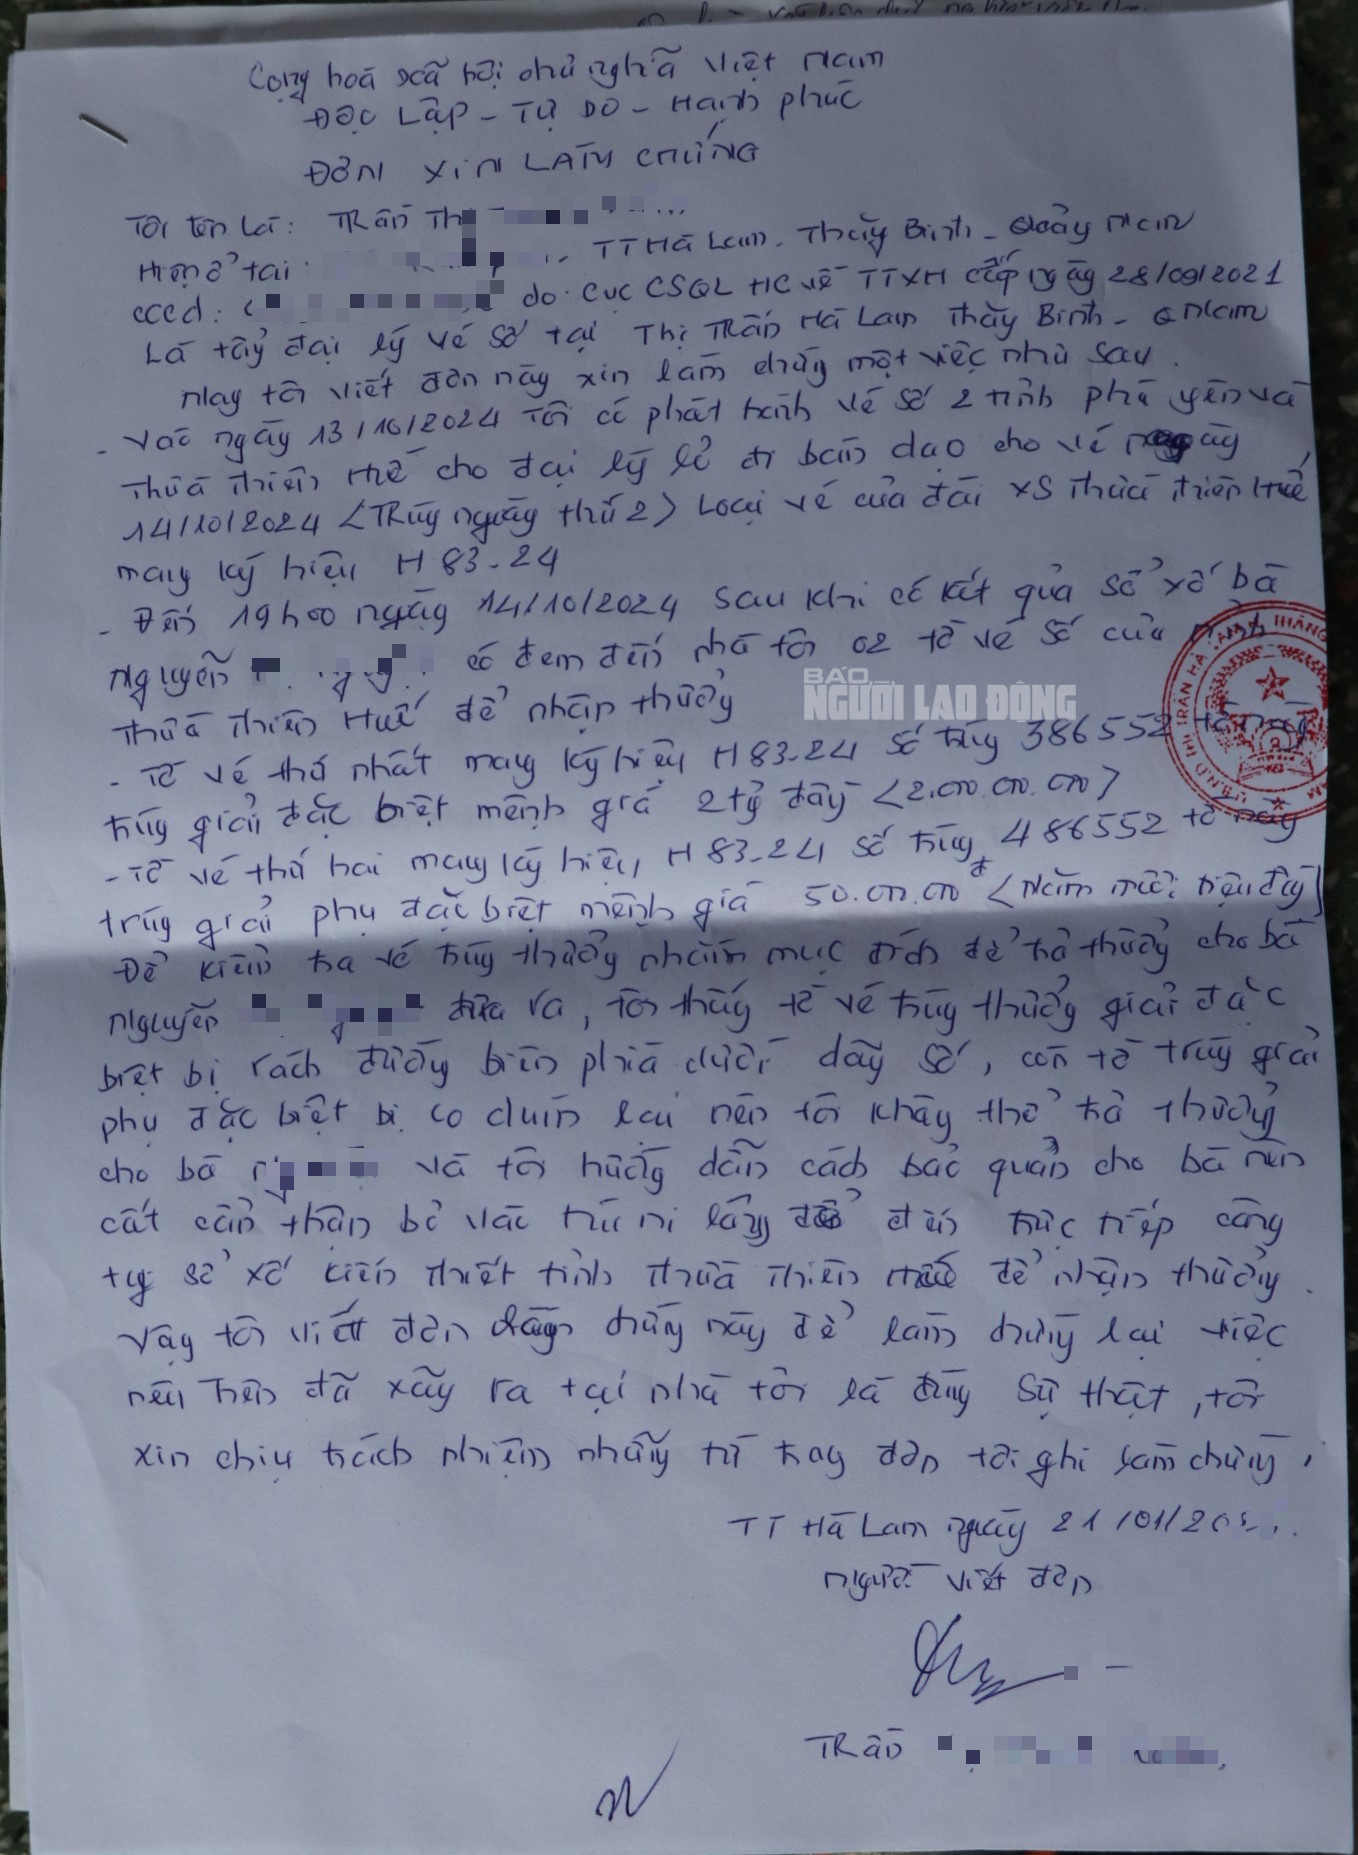 Cọng hoà xã hội chủ nghĩa việt nam
ĐỘC LẬP - TỰ DO - Hạnh phúc
ĐƠN XIN LÀM CHỨNG
Tôi tên Là: TRần Th
Hiện ở tại TT Hà Lam - Thăng Bình - Quảng Nam
cccd: do cục CSQL HC về TTXH cấp ngày 28/09/2021
Là tổng đại lý vé số tại Thị Trấn Hà Lam Thăng Bình - QNam
Nay tôi viết đơn này xin làm chứng một việc như sau.
- Vào ngày 13/10/2024 Tôi có phát hành vé số 2 tỉnh phú yên và
Thừa thiên Huế cho đại lý lẻ đi bán dạo cho vé ngày
14/10/2024 <Trúng ngày thứ 2> Loại vé của đài XS Thừa thiên Huế
mang ký hiệu H 83-24
- Đến 19h00 ngày 14/10/2024 sau khi có kết quả sổ xố bà
Nguyễn có đem đến nhà tôi 02 tờ vé số của tỉnh
Thừa Thiên Huế để nhận thưởng
BÁO
NGƯỜI LAO ĐỘNG
- Tờ vé thứ nhất mang ký hiệu H 83-24 số trúng 386552 tờ này
trúng giải đặc biệt mệnh giá 2 tỷ đồng <2.000.000.000>
- Tờ vé thứ hai mang ký hiệu H 83-24 số trúng 486552 tờ này
trúng giải phụ đặc biệt mệnh giá 50.000.000đ <Năm mươi triệu đồng>
Để kiểm tra vé trúng thưởng nhằm mục đích để trả thưởng cho bà
Nguyễn đưa ra, tôi thấy tờ vé trúng thưởng giải đặc
biệt bị rách đường biên phía dưới dãy số, còn tờ trúng giải
phụ đặc biệt bị co dúm lại nên tôi không thể trả thưởng
cho bà và tôi hướng dẫn cách bảo quản cho bà nên
cất cẩn thận bỏ vào túi ni lông để đến trực tiếp công
ty sổ xố kiến thiết tỉnh thừa thiên Huế để nhận thưởng.
Vậy tôi viết đơn chứng này để làm chứng lại việc
nêu trên đã xảy ra tại nhà tôi là đúng sự thật, tôi
xin chịu trách nhiệm những từ trong đơn tôi ghi làm chứng.
TT Hà Lam ngày 21/01/20
người viết đơn
TRần